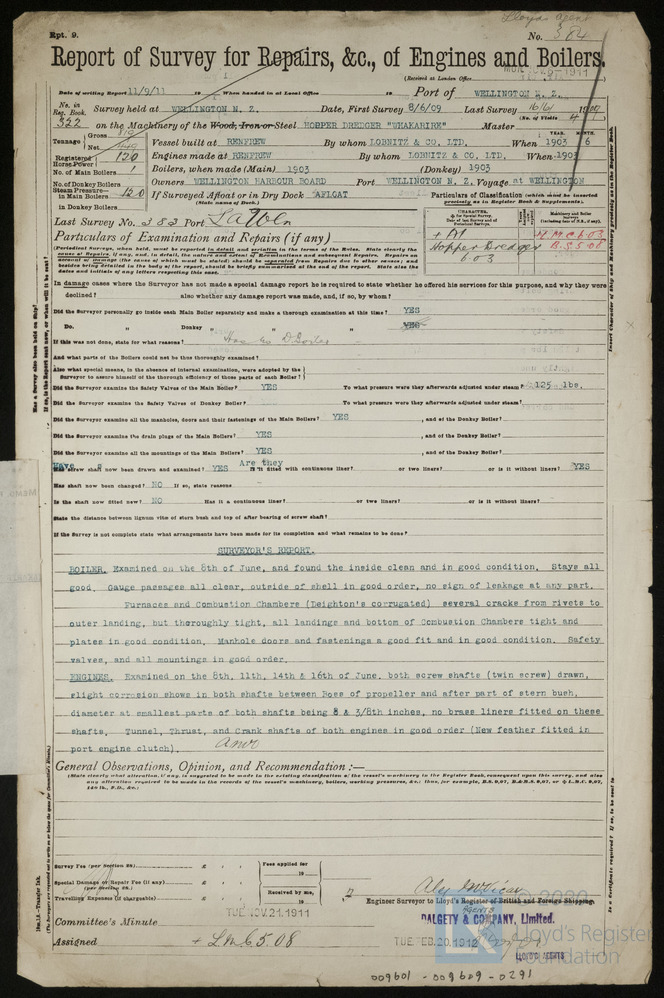 Lloyds Agent
Rpt. 9.
No. 304
Report of Survey for Repairs, &c., of Engines and Boilers.
(Received at London Office
Date of writing Report 11/9/11 19 When handed in at Local Office 19 Port of WELLINGTON N. Z.
No. in Reg. Book. 322 Survey held at WELLINGTON N. Z. Date, First Survey 8/6/09 Last Survey 16/6/ 1909
(No. of Visits 4)
on the Machinery of the Wood, Iron or Steel HOPPER DREDGER "WHAKARIRE" Master
Tonnage Gross
Net
Vessel built at RENFREW By whom LOBNITZ & CO. LTD. When 1903 6
YEAR. MONTH.
Registered Horse Power 120
Engines made at RENFREW By whom LOBNITZ & CO. LTD. When 1903
No. of Main Boilers 1
Boilers, when made (Main) 1903 (Donkey) 1903
No. of Donkey Boilers
Owners WELLINGTON HARBOUR BOARD Port WELLINGTON N. Z. Voyage at WELLINGTON
Steam Pressure in Main Boilers 120
in Donkey Boilers
If Surveyed Afloat or in Dry Dock AFLOAT
(State name of Dock.)
Particulars of Classification (which must be inserted precisely as in Register Book & Supplements).
Last Survey No. 383 Port
Particulars of Examination and Repairs (if any)
+ A1
Hopper Dredger
6.03
L.M.C. 6.03
B.S. 5.08
In damage cases where the Surveyor has not made a special damage report he is required to state whether he offered his services for this purpose, and why they were
declined? also whether any damage report was made, and, if so, by whom?
Did the Surveyor personally go inside each Main Boiler separately and make a thorough examination at this time? YES
Do. " Donkey " " " YES
If this was not done, state for what reasons? Has no D Boiler
And what parts of the Boilers could not be thus thoroughly examined?
Also what special means, in the absence of internal examination, were adopted by the
Surveyor to assure himself of the thorough efficiency of those parts of each Boiler?
Did the Surveyor examine the Safety Valves of the Main Boiler? YES To what pressure were they afterwards adjusted under steam? 125 lbs.
Did the Surveyor examine the Safety Valves of Donkey Boiler? To what pressure were they afterwards adjusted under steam?
Did the Surveyor examine all the manholes, doors and their fastenings of the Main Boilers? YES , and of the Donkey Boiler?
Did the Surveyor examine the drain plugs of the Main Boilers? YES , and of the Donkey Boiler?
Did the Surveyor examine all the mountings of the Main Boilers? YES , and of the Donkey Boiler?
Have screw shaft now been drawn and examined? YES Are they fitted with continuous liner? or two liners? or is it without liners? YES
Has shaft now been changed? NO If so, state reasons
Is the shaft now fitted new? NO Has it a continuous liner? or two liners? or is it without liners?
State the distance between lignum vitæ of stern bush and top of after bearing of screw shaft?
If the Survey is not complete state what arrangements have been made for its completion and what remains to be done?
SURVEYOR'S REPORT.
BOILER. Examined on the 8th of June, and found the inside clean and in good condition. Stays all
good. Gauge passages all clear, outside of shell in good order, no sign of leakage at any part.
Furnaces and Combustion Chambers (Deighton's corrugated) several cracks from rivets to
outer landing, but thoroughly tight, all landings and bottom of Combustion Chambers tight and
plates in good condition. Manhole doors and fastenings a good fit and in good condition. Safety
valves, and all mountings in good order.
ENGINES. Examined on the 8th, 11th, 14th & 16th of June, both screw shafts (twin screw) drawn,
slight corrosion shows in both shafts between Boss of propeller and after part of stern bush,
diameter at smallest parts of both shafts being 8 & 3/8th inches, no brass liners fitted on these
shafts. Tunnel, Thrust, and Crank shafts of both engines in good order (New feather fitted in
port engine clutch).
General Observations, Opinion, and Recommendation :—
(State clearly what alteration, if any, is suggested to be made in the existing classification of the vessel's machinery in the Register Book, consequent upon this survey, and also
any alteration required to be made in the records of the vessel's machinery, boilers, working pressures, &c.
Survey Fee (per Section 28) £ : : Fees applied for
19
Special Damage or Repair Fee (if any) £ : :
(per Section 28.)
Travelling Expenses (if chargeable) £ : : Received by me,
19
Engineer Surveyor to Lloyd's Register of British and Foreign Shipping.
AGENTS
DALGETY & COMPANY, Limited.
LLOYD'S AGENTS
Committee's Minute TUE. NOV. 21. 1911
TUE. FEB. 20. 1912
Assigned + LMC 5.08
© 2020
Lloyd's Register
Foundation
009601 - 009609 - 0291